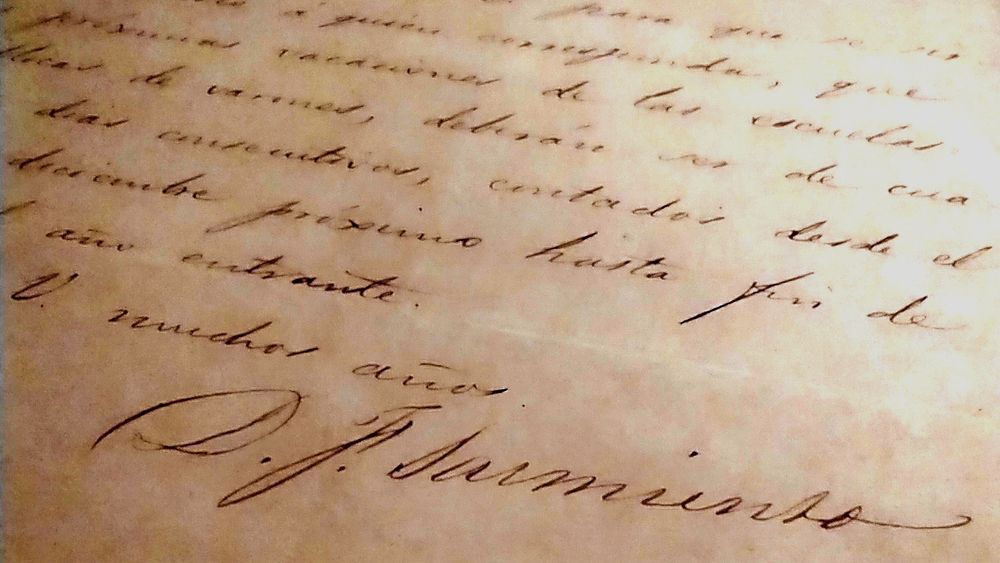 á quien corresponda, que
próximas vacaciones de las escuelas
de varones, deberán ser de cua
dias consecutivos, contados desde el
diciembre próximo hasta fin de
año entrante.
V. muchos años.
D. F. Sarmiento